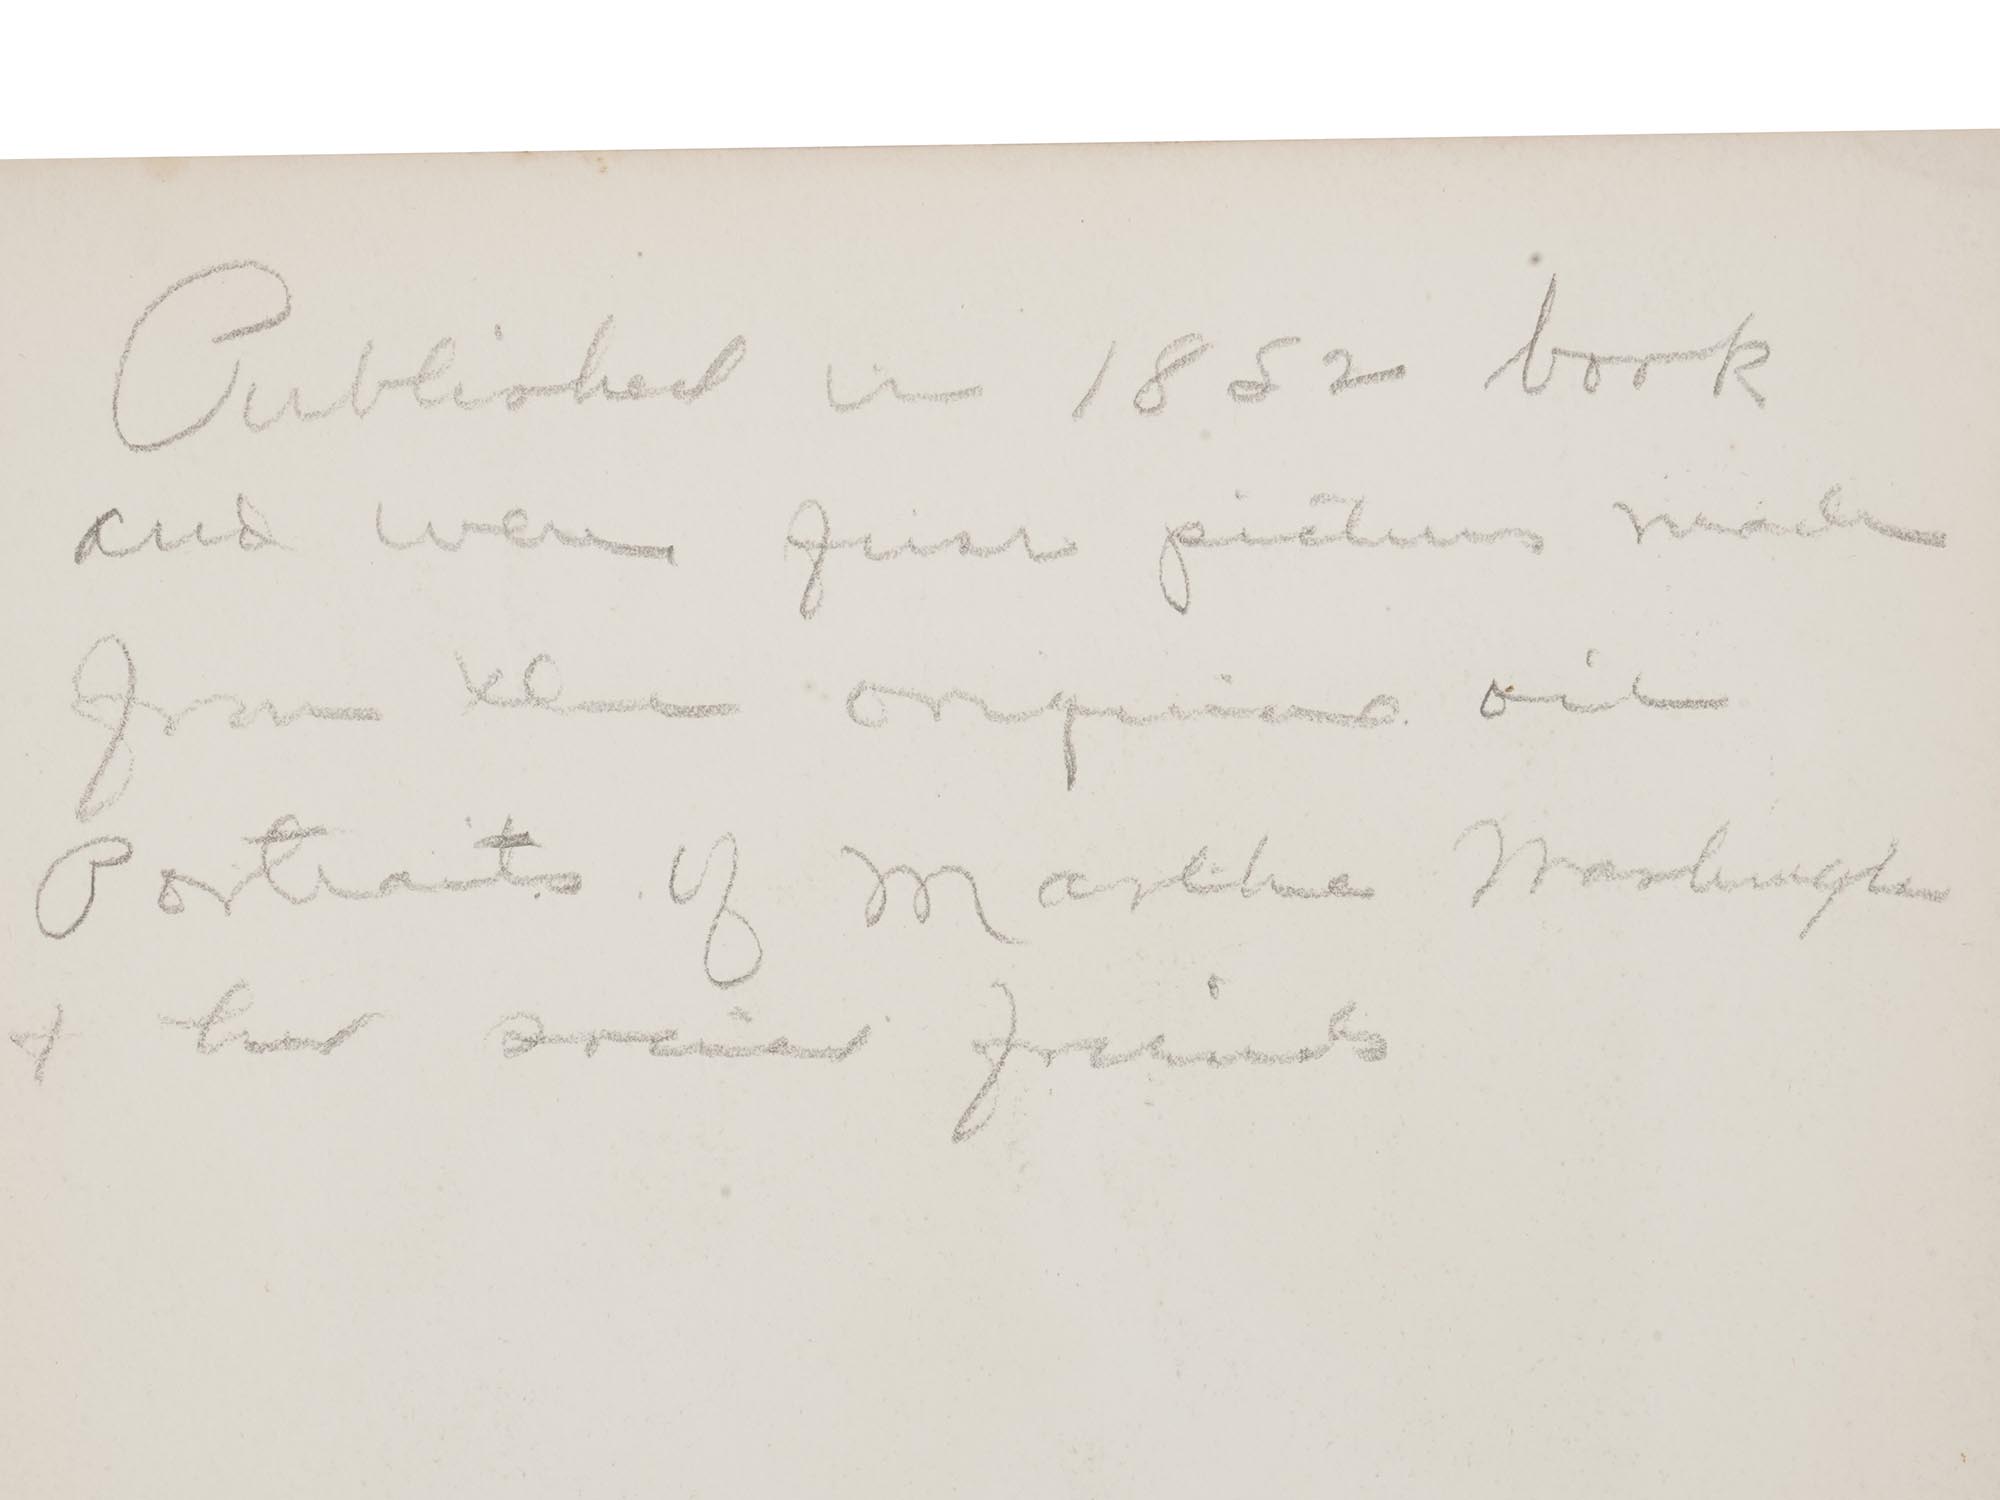 Published in 1852 book
and were first pictures made
from the original oil
Portraits of Martha Washington
& her social friends